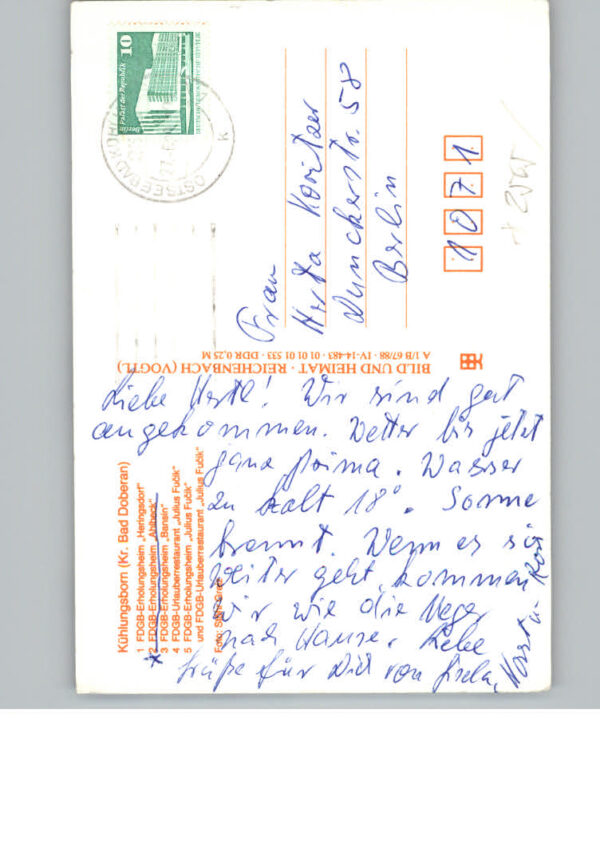 10
Berlin Palast der Republik
OSTSEEBAD KÜHL
k
Frau
Herta Koritzer
Dunckerstr. 58
Berlin
1071
BILD UND HEIMAT · REICHENBACH (VOGTL)
A 1/B 67/88 · IV-14-483 · 01 01 01 533 · DDR 0,25 M
Kühlungsborn (Kr. Bad Doberan)
1 FDGB-Erholungsheim „Heringsdorf“
2 FDGB-Erholungsheim „Ahlbeck“
3 FDGB-Erholungsheim „Bansin“
4 FDGB-Urlauberrestaurant „Julius Fučik“
5 FDGB-Erholungsheim „Julius Fučik“
und FDGB-Urlauberrestaurant „Julius Fučik“
Foto:
Liebe Herta! Wir sind gut
angekommen. Wetter bis jetzt
ganz prima. Wasser
zu kalt 18°. Sonne
brennt. Wenn es so
weiter geht, kommen
wir wie die Neger
nach Hause. Liebe
Grüße für Dich von Gisela, Horst u.